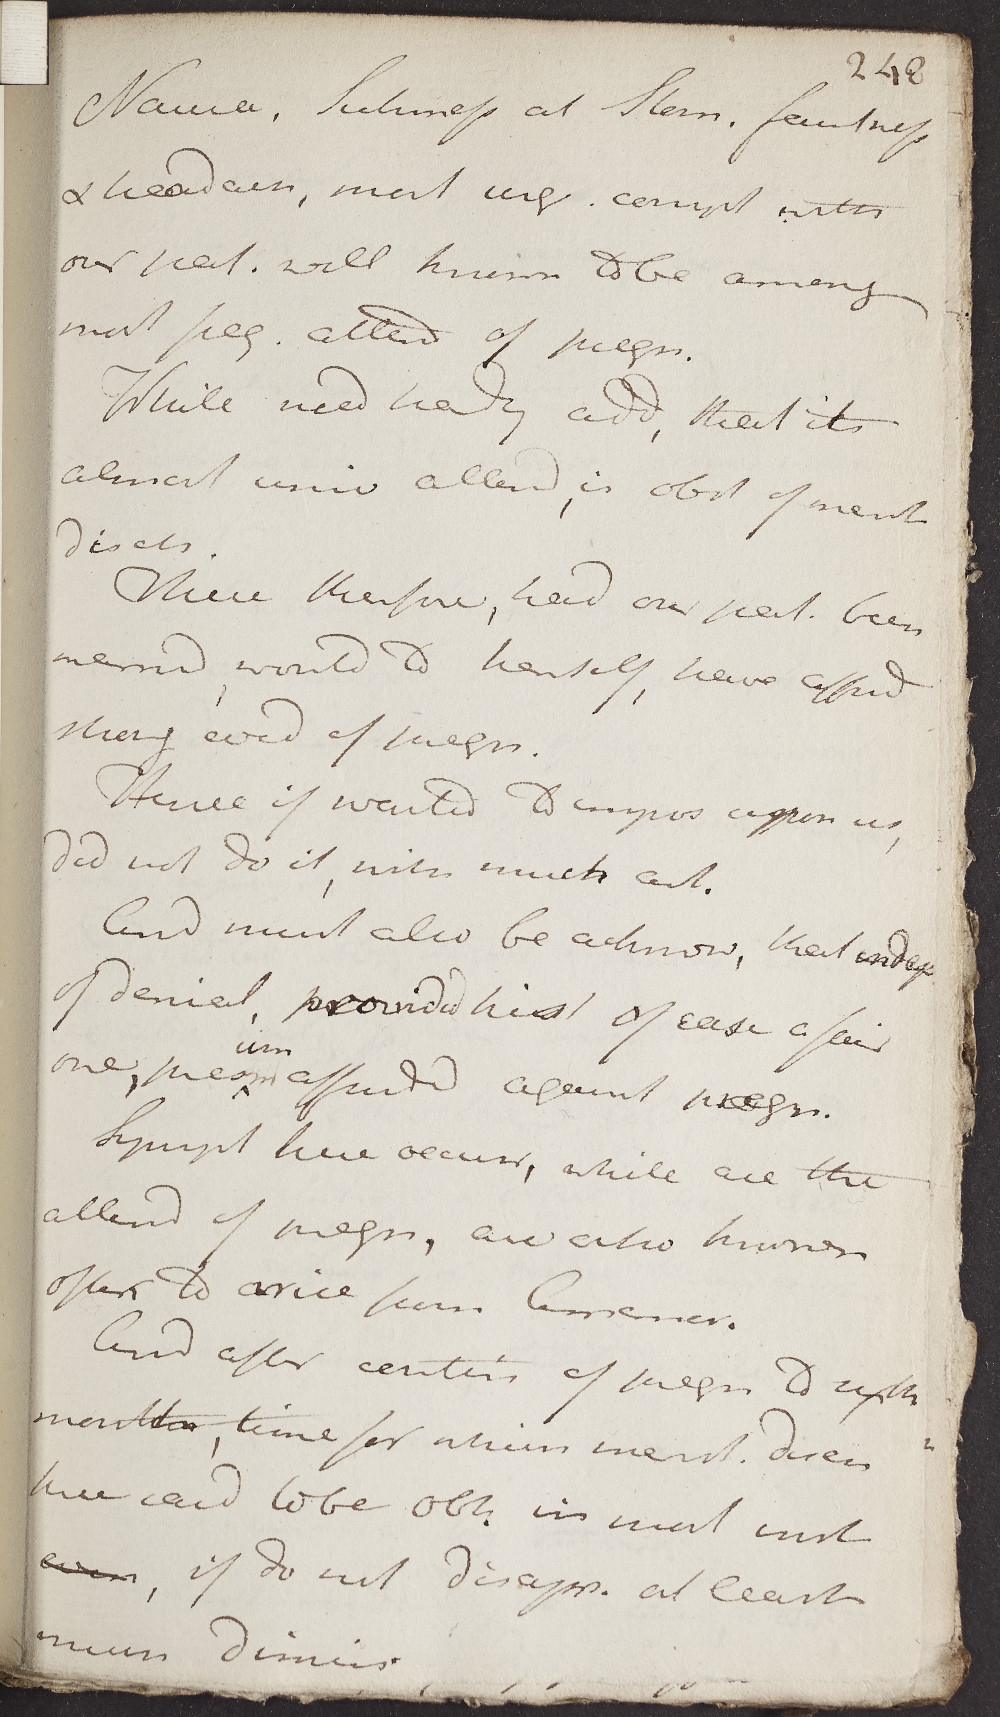 248
Nausea, Sickness at Stom. faintness
& headach, most urg. compt with
our pat. well known to be among
most freq. attend of pregn.
While need hardly add, that its
almost univ attend, is obst of menst
disch.
These therefore, had our pat. been
married, would to herself, have afford
strong evid of pregn.
Hence if wanted to impos upon us,
did not do it, with much art.
And must also be acknow, that indep
of denial, provided hist of case a fair
one, presum afforded against pregn.
Sympt here occurr, while are the
attend of pregn, are also known
often to arise from Amenor.
And after contin of pregn to sixth
month, time for which menst. disch
here said to be obst. in most inst
even, if do not disapp. at least
much dimin